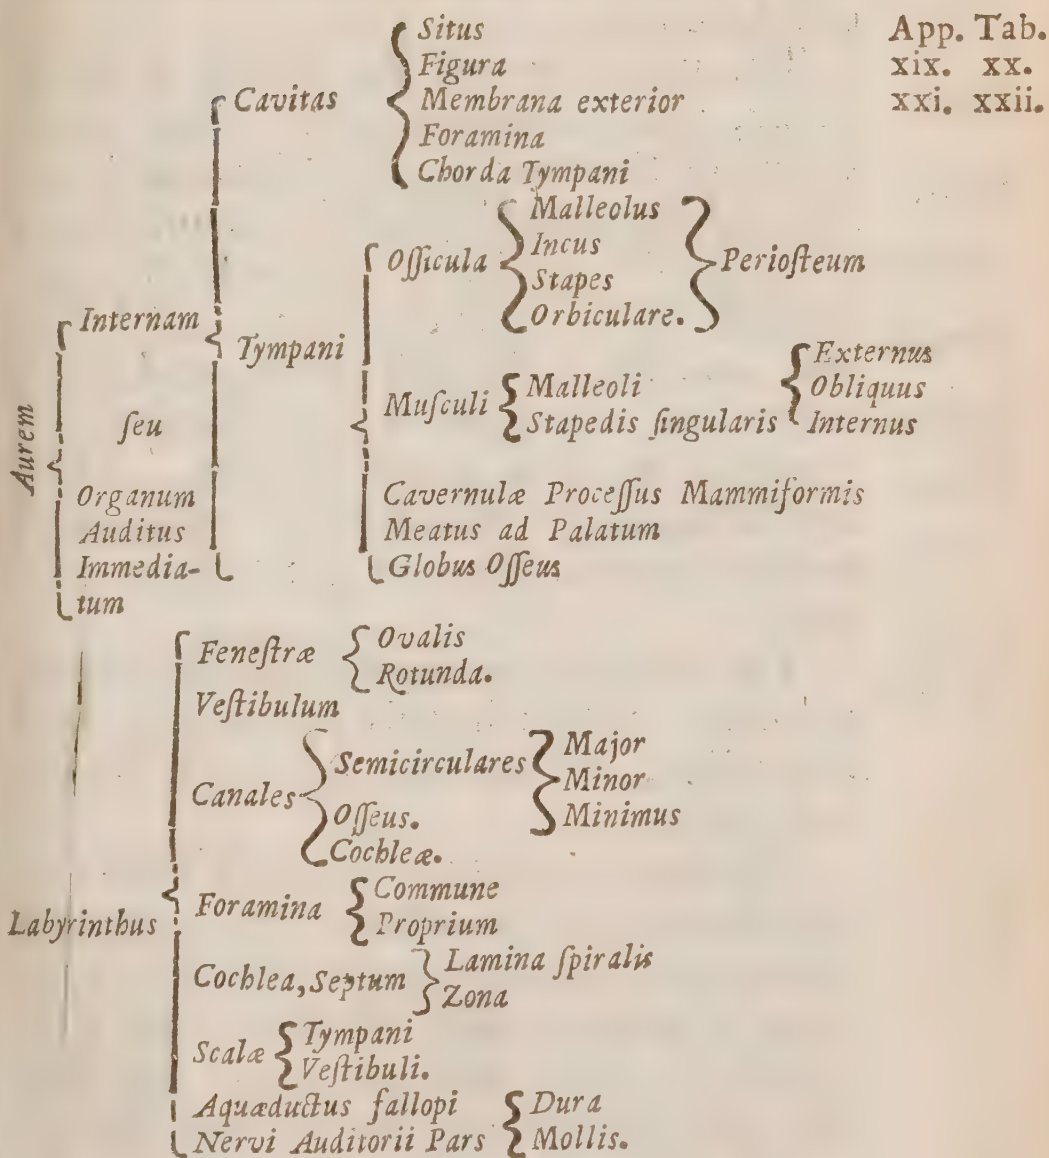 App. Tab.
xix. xx.
xxi. xxii.
Aurem
Internam
ſeu
Organum
Auditus
Immedia-
tum
Cavitas
Situs
Figura
Membrana exterior
Foramina
Chorda Tympani
Tympani
Oſſicula
Malleolus
Incus
Stapes
Orbiculare.
Perioſteum
Muſculi
Malleoli
Stapedis ſingularis
Externus
Obliquus
Internus
Cavernulæ Proceſſus Mammiformis
Meatus ad Palatum
Globus Oſſeus
Labyrinthus
Feneſtræ
Ovalis
Rotunda.
Veſtibulum
Canales
Semicirculares
Major
Minor
Minimus
Oſſeus.
Cochleæ.
Foramina
Commune
Proprium
Cochlea, Septum
Lamina ſpiralis
Zona
Scalæ
Tympani
Veſtibuli.
Aquæductus fallopi
Nervi Auditorii Pars
Dura
Mollis.